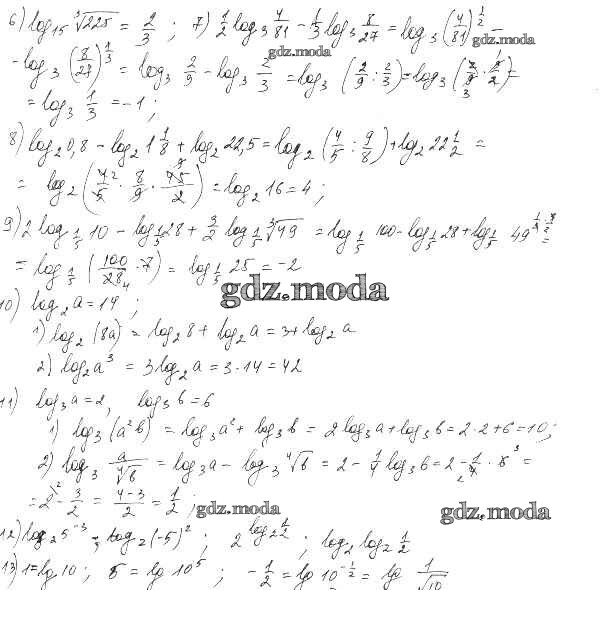 6) log₁₅ ³√225 = 2/3 ; 7) 1/2 log₃ 4/81 − 1/3 log₃ 8/27 = log₃ (4/81)^(1/2) −
gdz.moda
gdz.moda
− log₃ (8/27)^(1/3) = log₃ 2/9 − log₃ 2/3 = log₃ (2/9 : 2/3) = log₃ (2/9 · 3/2) =
= log₃ 1/3 = −1 ;
8) log₂ 0,8 − log₂ 1 1/8 + log₂ 22,5 = log₂ (4/5 : 9/8) + log₂ 22 1/2 =
= log₂ (4/5 · 8/9 · 45/2) = log₂ 16 = 4 ;
9) 2 log_(1/5) 10 − log_(1/5) 28 + 3/2 log_(1/5) ³√49 = log_(1/5) 100 − log_(1/5) 28 + log_(1/5) 49^(1/3 · 3/2) =
= log_(1/5) (100/28 · 7) = log_(1/5) 25 = −2
gdz.moda
10) log₂ a = 14 ;
1) log₂ (8a) = log₂ 8 + log₂ a = 3 + log₂ a
2) log₂ a³ = 3 log₂ a = 3 · 14 = 42
11) log₃ a = 2, log₃ b = 6
1) log₃ (a² b) = log₃ a² + log₃ b = 2 log₃ a + log₃ b = 2 · 2 + 6 = 10 ;
2) log₃ a/⁴√b = log₃ a − log₃ ⁴√b = 2 − 1/4 log₃ b = 2 − 1/4 · 6 =
= 2 − 3/2 = (4−3)/2 = 1/2 ;
gdz.moda
gdz.moda
12) log₂ 5⁻³ ; log₂ (−5)² ; 2^(log₂ 1/2) ; log₂ log₂ 1/2
13) 1 = lg 10 ; 5 = lg 10⁵ ; −1/2 = lg 10^(−1/2) = lg 1/√10